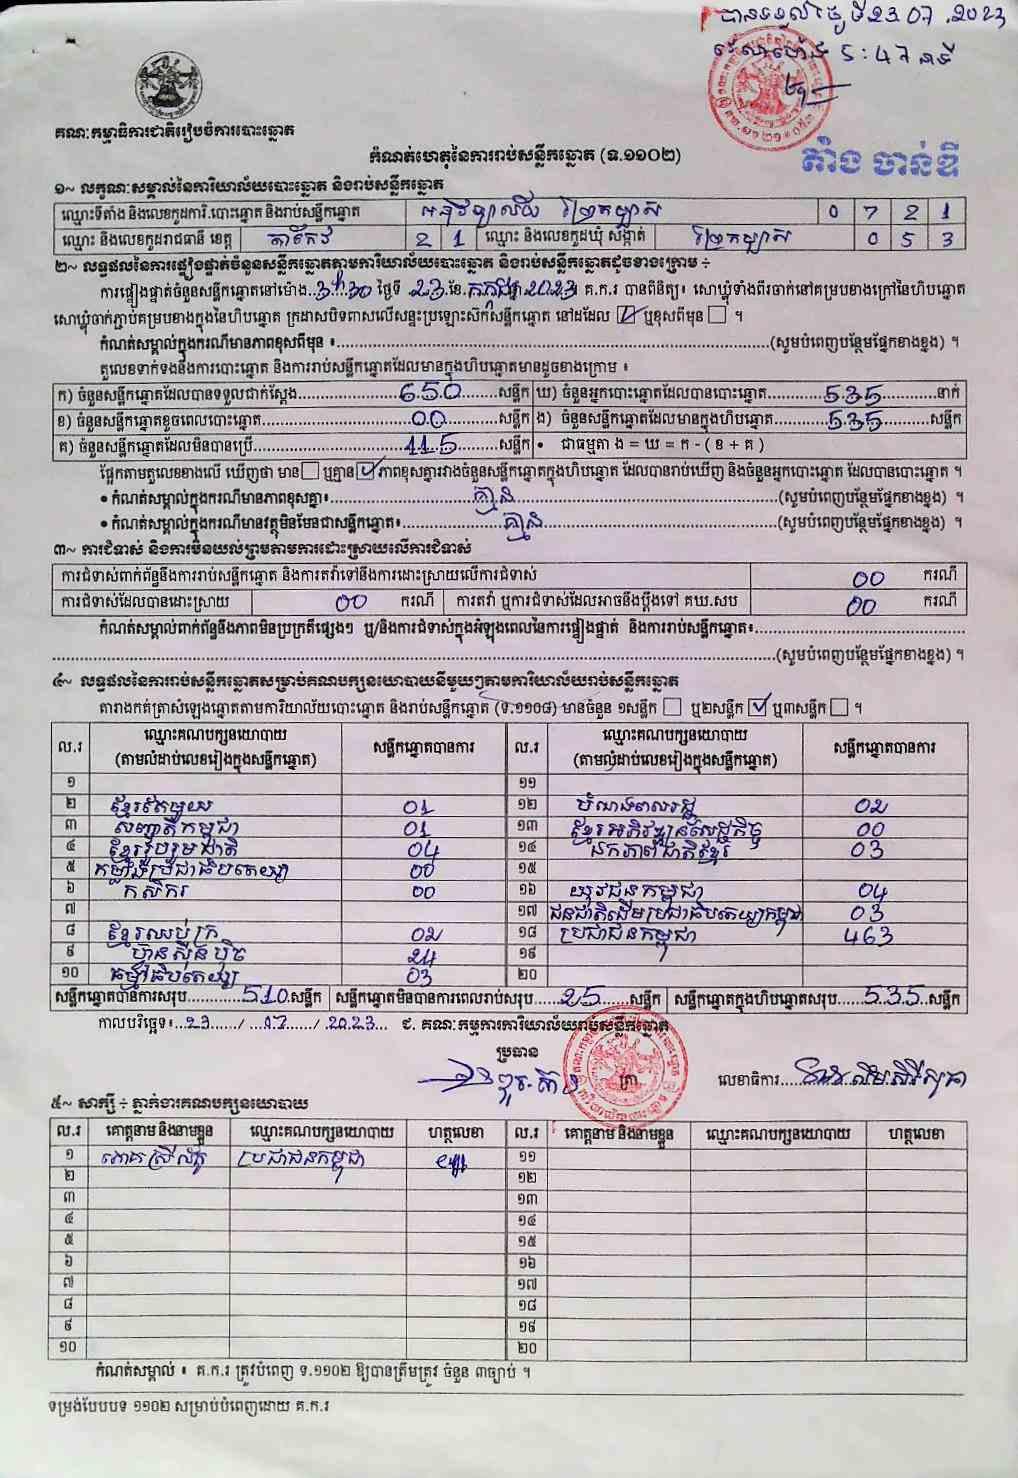 បានទទួលថ្ងៃទី 23 07 . 2023
វេលាម៉ោង 5 : 47 នាទី
គណៈកម្មាធិការជាតិរៀបចំការបោះឆ្នោត
តាំង ចាន់ឌី
កំណត់ហេតុនៃការរាប់សន្លឹកឆ្នោត (ទ.១១០២)
១~ លក្ខណៈសម្គាល់នៃការិយាល័យបោះឆ្នោត និងរាប់សន្លឹកឆ្នោត
ឈ្មោះទីតាំង និងលេខកូដការិ.បោះឆ្នោត និងរាប់សន្លឹកឆ្នោត អនុវិទ្យាល័យ ព្រៃកប្បាស 0 7 2 1
ឈ្មោះ និងលេខកូដរាជធានី ខេត្ត តាកែវ 2 1 ឈ្មោះ និងលេខកូដឃុំ សង្កាត់ ព្រៃកប្បាស 0 5 3
២~ លទ្ធផលនៃការផ្ទៀងផ្ទាត់ចំនួនសន្លឹកឆ្នោតតាមការិយាល័យបោះឆ្នោត និងរាប់សន្លឹកឆ្នោតដូចខាងក្រោម ÷
ការផ្ទៀងផ្ទាត់ចំនួនសន្លឹកឆ្នោតនៅម៉ោង..3h30 ថ្ងៃទី 23 ខែ កក្កដា 2023 គ.ក.រ បានពិនិត្យ៖ សោឃ្លុំទាំងពីរចាក់នៅគម្របខាងក្រៅនៃហិបឆ្នោត
សោឃ្លុំចាក់ភ្ជាប់គម្របខាងក្នុងនៃហិបឆ្នោត ក្រដាសបិទពាសលើសន្ទះប្រឡោះសិកសន្លឹកឆ្នោត នៅដដែល ☑ ឬខុសពីមុន ☐ ។
កំណត់សម្គាល់ក្នុងករណីមានភាពខុសពីមុន ៖ (សូមបំពេញបន្ថែមផ្នែកខាងខ្នង) ។
តួលេខទាក់ទងនឹងការបោះឆ្នោត និងការរាប់សន្លឹកឆ្នោតដែលមានក្នុងហិបឆ្នោតមានដូចខាងក្រោម ៖
ក) ចំនួនសន្លឹកឆ្នោតដែលបានទទួលជាក់ស្តែង 650 សន្លឹក ឃ) ចំនួនអ្នកបោះឆ្នោតដែលបានបោះឆ្នោត 535 នាក់
ខ) ចំនួនសន្លឹកឆ្នោតខូចពេលបោះឆ្នោត 00 សន្លឹក ង) ចំនួនសន្លឹកឆ្នោតដែលមានក្នុងហិបឆ្នោត 535 សន្លឹក
គ) ចំនួនសន្លឹកឆ្នោតដែលមិនបានប្រើ 115 សន្លឹក • ជាធម្មតា ង = ឃ = ក - ( ខ + គ )
ផ្អែកតាមតួលេខខាងលើ ឃើញថា មាន ☐ ឬគ្មាន ☑ ភាពខុសគ្នារវាងចំនួនសន្លឹកឆ្នោតក្នុងហិបឆ្នោត ដែលបានរាប់ឃើញ និងចំនួនអ្នកបោះឆ្នោត ដែលបានបោះឆ្នោត ។
• កំណត់សម្គាល់ក្នុងករណីមានភាពខុសគ្នា៖ គ្មាន (សូមបំពេញបន្ថែមផ្នែកខាងខ្នង) ។
• កំណត់សម្គាល់ក្នុងករណីមានវត្ថុមិនមែនជាសន្លឹកឆ្នោត៖ គ្មាន (សូមបំពេញបន្ថែមផ្នែកខាងខ្នង) ។
៣~ ការជំទាស់ និងការមិនយល់ព្រមតាមការដោះស្រាយលើការជំទាស់
ការជំទាស់ពាក់ព័ន្ធនឹងការរាប់សន្លឹកឆ្នោត និងការតវ៉ាទៅនឹងការដោះស្រាយលើការជំទាស់ 00 ករណី
ការជំទាស់ដែលបានដោះស្រាយ 00 ករណី ការតវ៉ា ឬការជំទាស់ដែលអាចនឹងប្តឹងទៅ គឃ.សប 00 ករណី
កំណត់សម្គាល់ពាក់ព័ន្ធនឹងភាពមិនប្រក្រតីផ្សេងៗ ឬ/និងការជំទាស់ក្នុងអំឡុងពេលនៃការផ្ទៀងផ្ទាត់ និងការរាប់សន្លឹកឆ្នោត៖
(សូមបំពេញបន្ថែមផ្នែកខាងខ្នង) ។
៤~ លទ្ធផលនៃការរាប់សន្លឹកឆ្នោតសម្រាប់គណបក្សនយោបាយនីមួយៗតាមការិយាល័យរាប់សន្លឹកឆ្នោត
តារាងកត់ត្រាសំឡេងឆ្នោតតាមការិយាល័យបោះឆ្នោត និងរាប់សន្លឹកឆ្នោត (ទ.១១០៨) មានចំនួន ១សន្លឹក ☐ ឬ២សន្លឹក ☑ ឬ៣សន្លឹក ☐ ។
ល.រ ឈ្មោះគណបក្សនយោបាយ (តាមលំដាប់លេខរៀងក្នុងសន្លឹកឆ្នោត) សន្លឹកឆ្នោតបានការ ល.រ ឈ្មោះគណបក្សនយោបាយ (តាមលំដាប់លេខរៀងក្នុងសន្លឹកឆ្នោត) សន្លឹកឆ្នោតបានការ
១ ១១
២ ខ្មែរតែមួយ 01 ១២ បំណងពលរដ្ឋ 02
៣ សញ្ជាតិកម្ពុជា 01 ១៣ ខ្មែរអភិវឌ្ឍន៍សេដ្ឋកិច្ច 00
៤ ខ្មែររួបរួមជាតិ 04 ១៤ ឯកភាពជាតិខ្មែរ 03
៥ កម្លាំងប្រជាធិបតេយ្យ 00 ១៥
៦ កសិករ 00 ១៦ យុវជនកម្ពុជា 04
៧ ១៧ ជនជាតិដើមប្រជាធិបតេយ្យកម្ពុជា 03
៨ ខ្មែរឈប់ក្រ 02 ១៨ ប្រជាជនកម្ពុជា 463
៩ ហ៊្វុនស៊ិនប៉ិច 24 ១៩
១០ ធម្មាធិបតេយ្យ 03 ២០
សន្លឹកឆ្នោតបានការសរុប 510 សន្លឹក សន្លឹកឆ្នោតមិនបានការពេលរាប់សរុប 25 សន្លឹក សន្លឹកឆ្នោតក្នុងហិបឆ្នោតសរុប 535 សន្លឹក
កាលបរិច្ឆេទ៖ 23 / 07 / 2023 ជ. គណៈកម្មការការិយាល័យរាប់សន្លឹកឆ្នោត
ប្រធាន
លេខាធិការ
៥~ សាក្សី ÷ ភ្នាក់ងារគណបក្សនយោបាយ
ល.រ គោត្តនាម និងនាមខ្លួន ឈ្មោះគណបក្សនយោបាយ ហត្ថលេខា ល.រ គោត្តនាម និងនាមខ្លួន ឈ្មោះគណបក្សនយោបាយ ហត្ថលេខា
១ ប្រជាជនកម្ពុជា ១១
២ ១២
៣ ១៣
៤ ១៤
៥ ១៥
៦ ១៦
៧ ១៧
៨ ១៨
៩ ១៩
១០ ២០
កំណត់សម្គាល់ ៖ គ.ក.រ ត្រូវបំពេញ ទ.១១០២ ឱ្យបានត្រឹមត្រូវ ចំនួន ៣ច្បាប់ ។
ទម្រង់បែបបទ ១១០២ សម្រាប់បំពេញដោយ គ.ក.រ